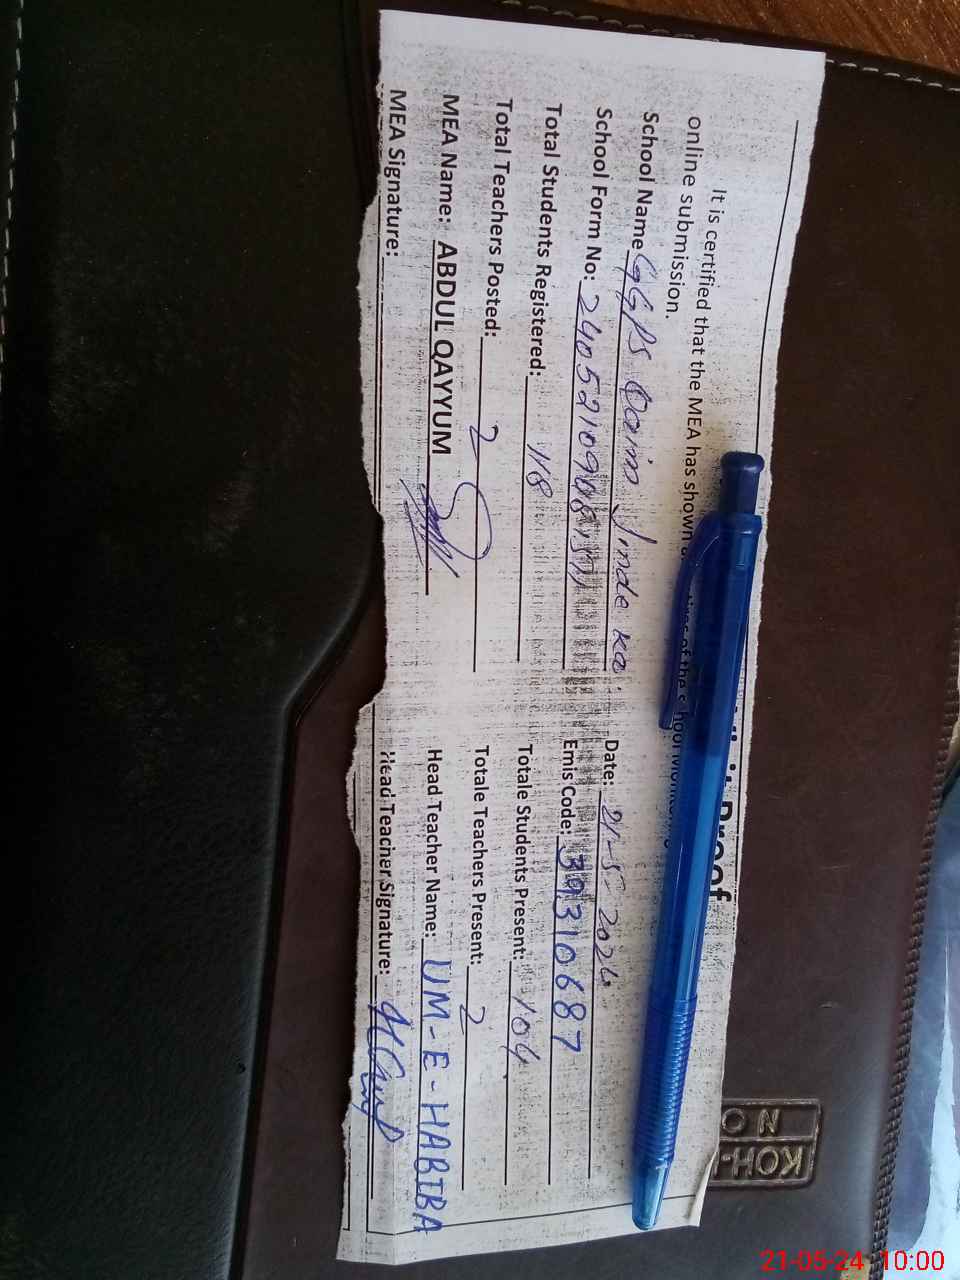 Visit Proof
It is certified that the MEA has shown
online submission.
School Name GGPS Qaim Jinde ka. Date: 21-5-2024
School Form No: Emis Code: 39310687
Total Students Registered: 118 Totale Students Present: 104
Total Teachers Posted: 2 Totale Teachers Present: 2
MEA Name: ABDUL QAYYUM Head Teacher Name: UM-E-HABIBA
MEA Signature: Head Teacher Signature:
KOH-
NO
21-05-24 10:00